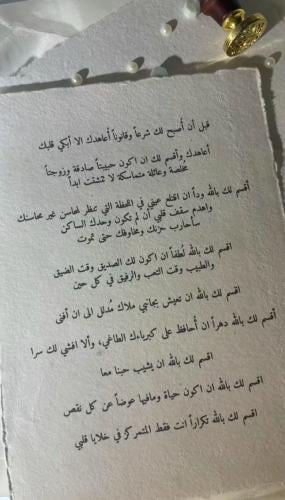 قبل أن أُصبح لك شرعاً وقانوناً أعاهدك الا أبكي قلبك
أعاهدك وأقسم لك ان اكون حبيبتاً صادقة وزوجتاً
مُخلصة وعائلة متماسكة لا تتشتت ابداً
أقسم لك بالله وداً ان اقتلع عيني في اللحظة التي تنظر لمحاسن غير محاسنك
واهدم سقف قلبي أن لم تكون وحدك الساكن
سأحارب حزنك ومخاوفك حتى تموت
اقسم لك بالله لُطفاً ان اكون لك الصديق وقت الضيق
والطبيب وقت التعب والرفيق في كل حين
اقسم لك بالله ان تعيش بجانبي ملاك مُدلل الى ان أفنى
أقسم لك بالله دهراً ان أُحافظ على كبرياءك الطاغي، وألا افشي لك سرا
اقسم لك بالله ان يشيب حبنا معا
اقسم لك بالله ان اكون حياة ومافيها عوضاً عن كل نقص
اقسم لك بالله تكراراً انت فقط المتمركز في خلايا قلبي